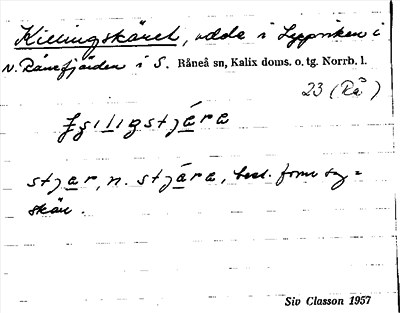 Killingskäret, udde i Lyppviken i
N. Rånefjärden i S. Råneå sn, Kalix doms. o. tg. Norrb. l.
23 (Rå)
stjar, n. stjära, best. form sg =
skär.
Siv Classon 1957